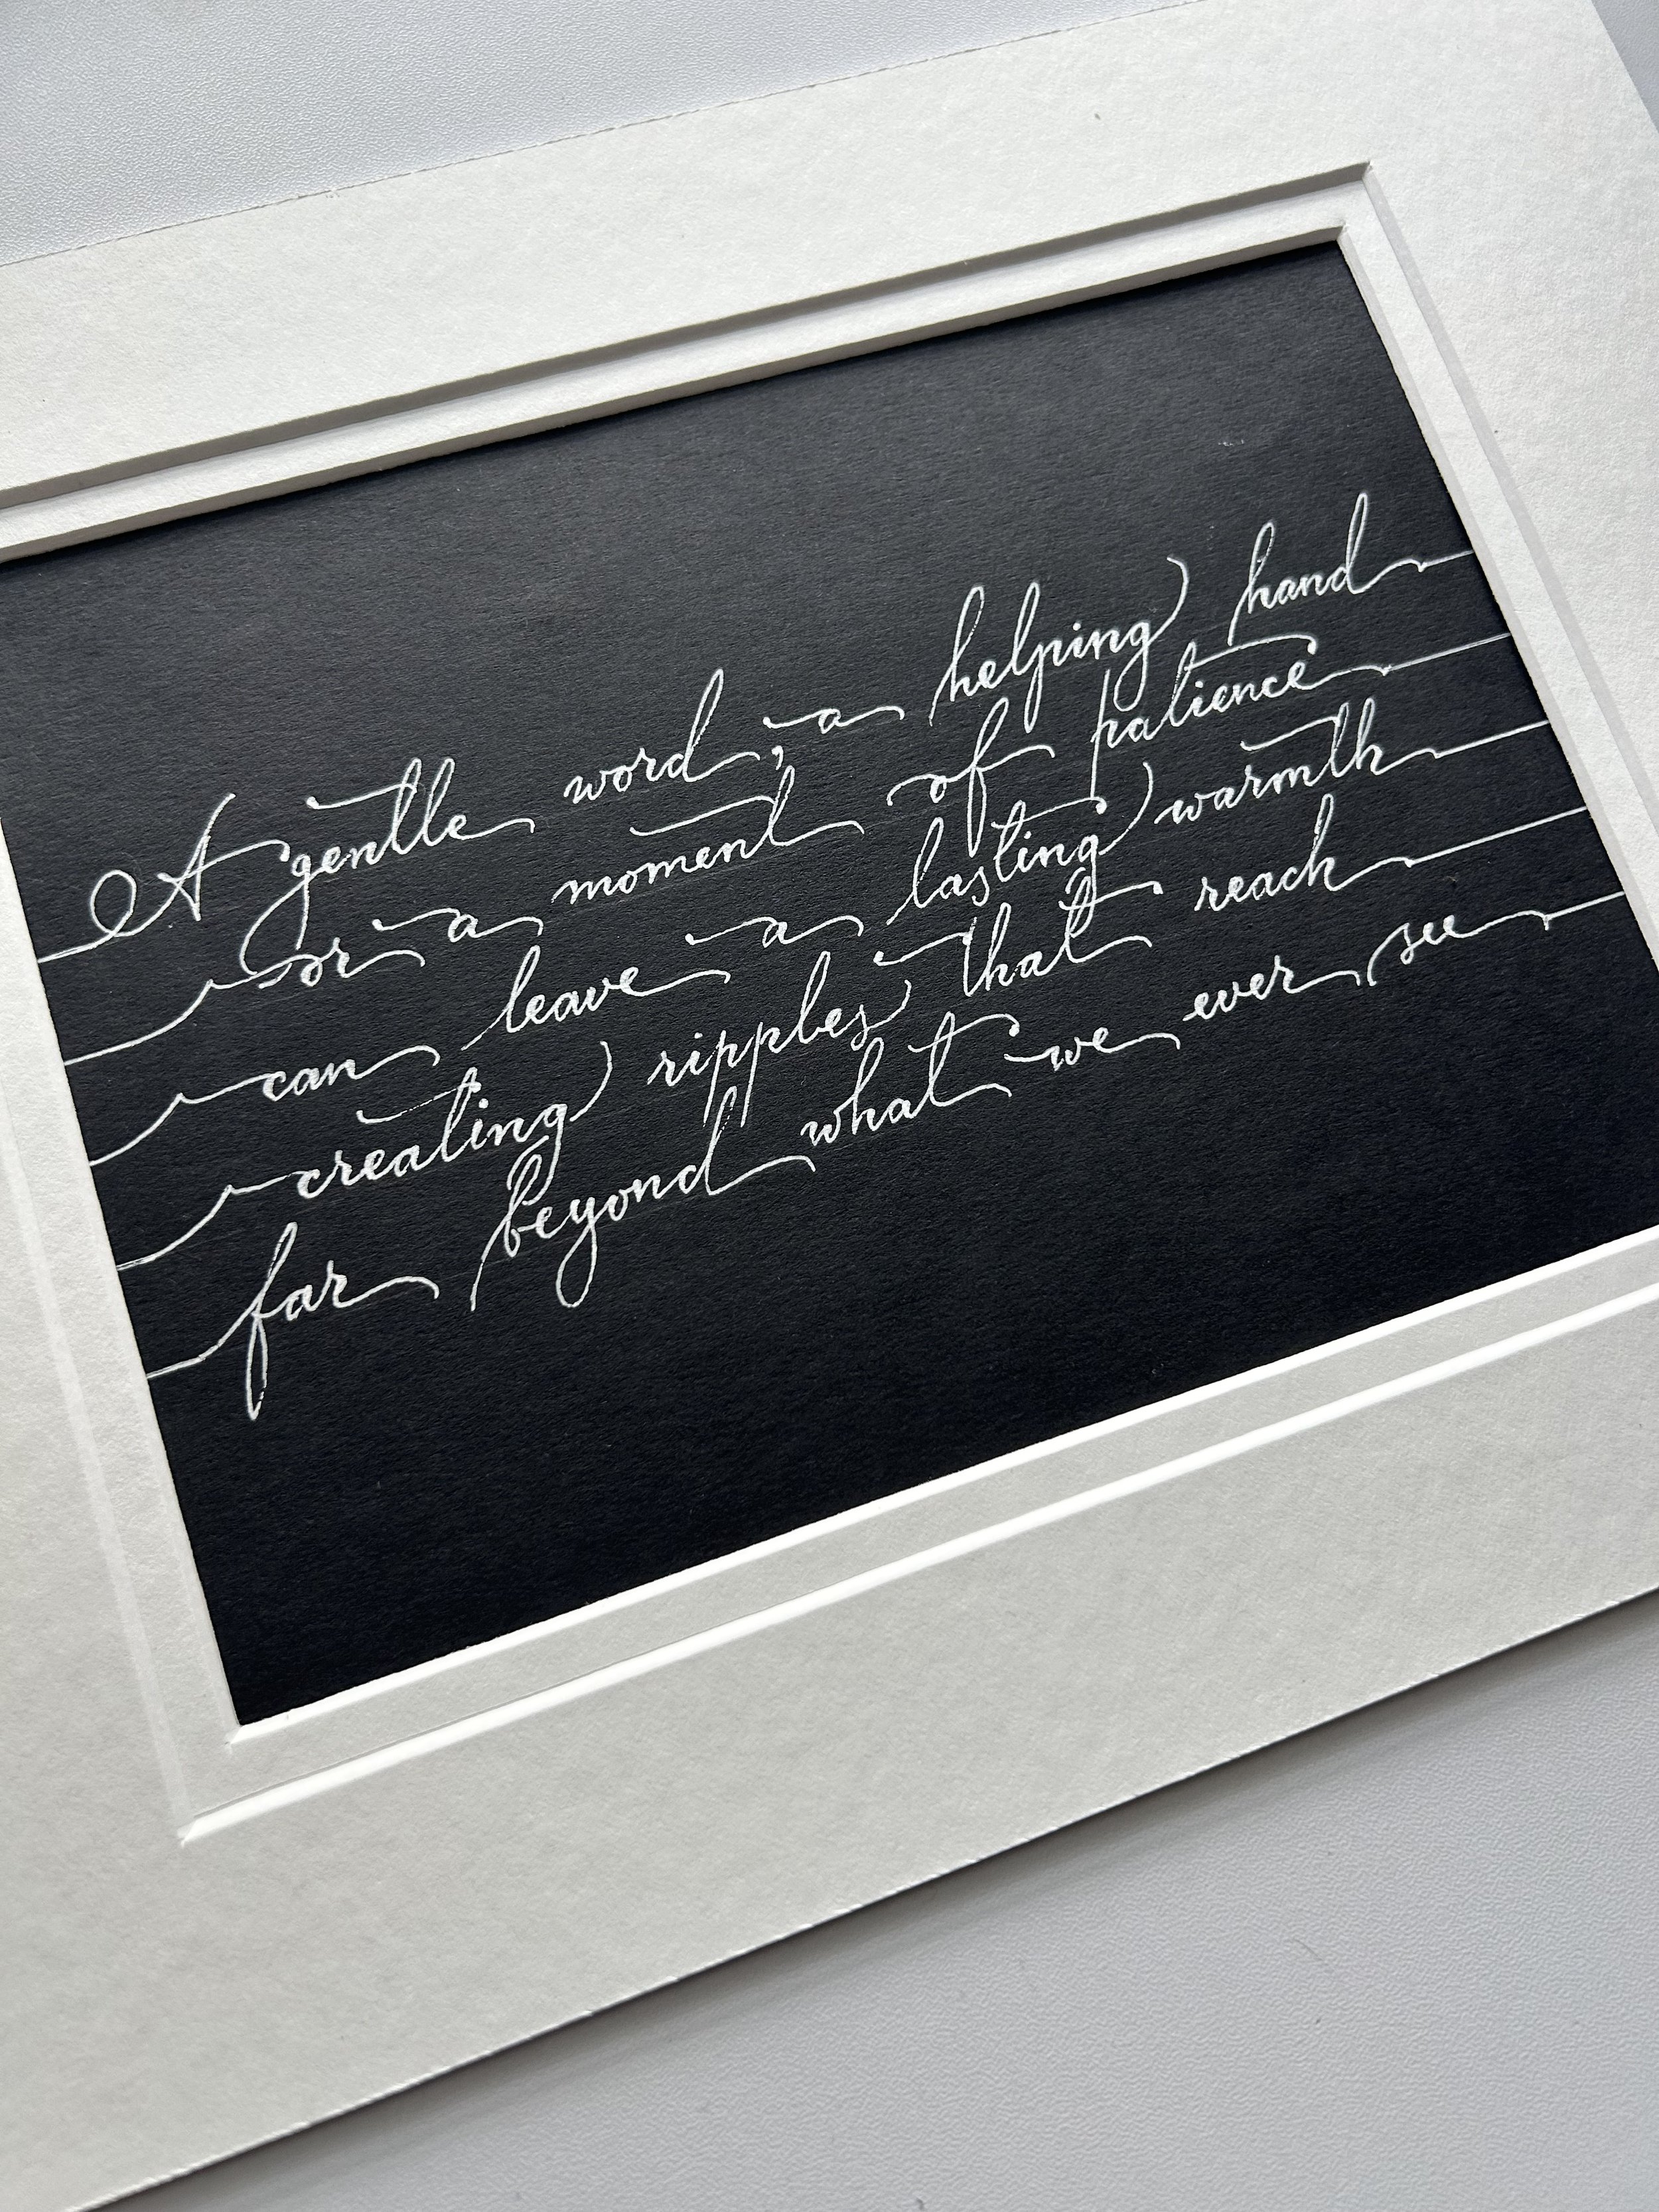 A gentle word, a helping hand
or a moment of patience
can leave a lasting warmth
creating ripples that reach
far beyond what we ever see